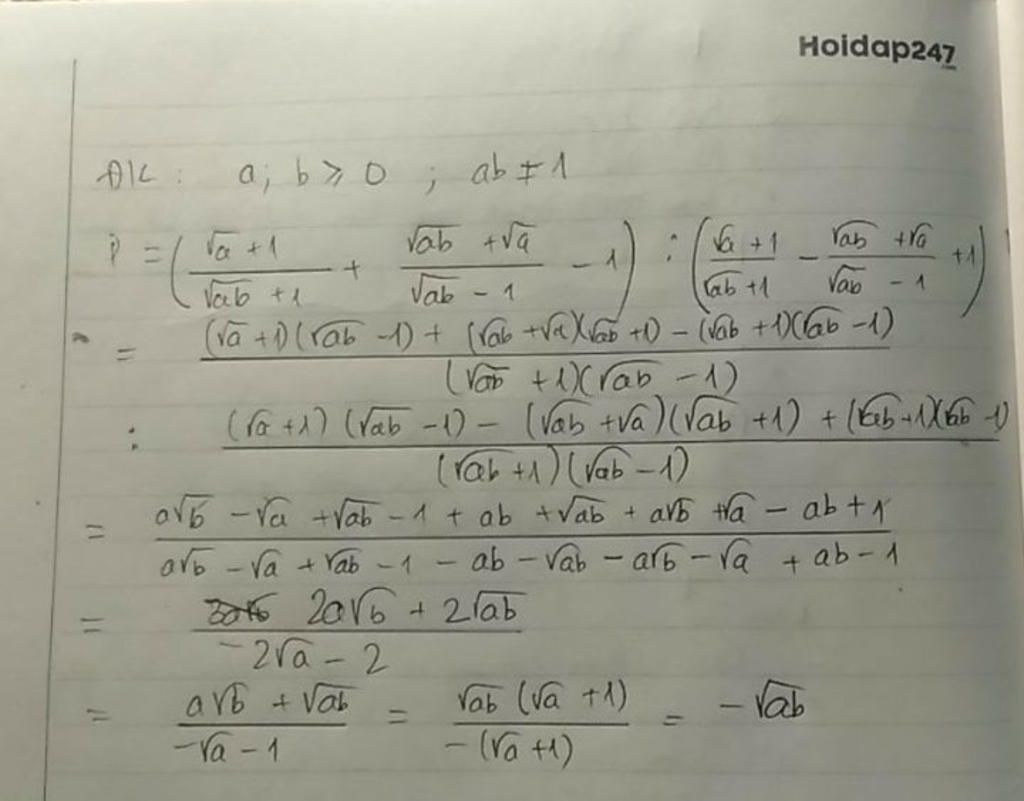 Hoidap247
ĐK : a; b ≥ 0 ; ab ≠ 1
P = ( (√a + 1)/(√ab + 1) + (√ab + √a)/(√ab - 1) - 1 ) : ( (√a + 1)/(√ab + 1) - (√ab + √a)/(√ab - 1) + 1 )
= ((√a + 1)(√ab - 1) + (√ab + √a)(√ab + 1) - (√ab + 1)(√ab - 1))/((√ab + 1)(√ab - 1))
: ((√a + 1)(√ab - 1) - (√ab + √a)(√ab + 1) + (√ab + 1)(√ab - 1))/((√ab + 1)(√ab - 1))
= (a√b - √a + √ab - 1 + ab + √ab + a√b + √a - ab + 1)/(a√b - √a + √ab - 1 - ab - √ab - a√b - √a + ab - 1)
= (2a√b + 2√ab)/(-2√a - 2)
= (a√b + √ab)/(-√a - 1) = (√ab (√a + 1))/(-(√a + 1)) = -√ab